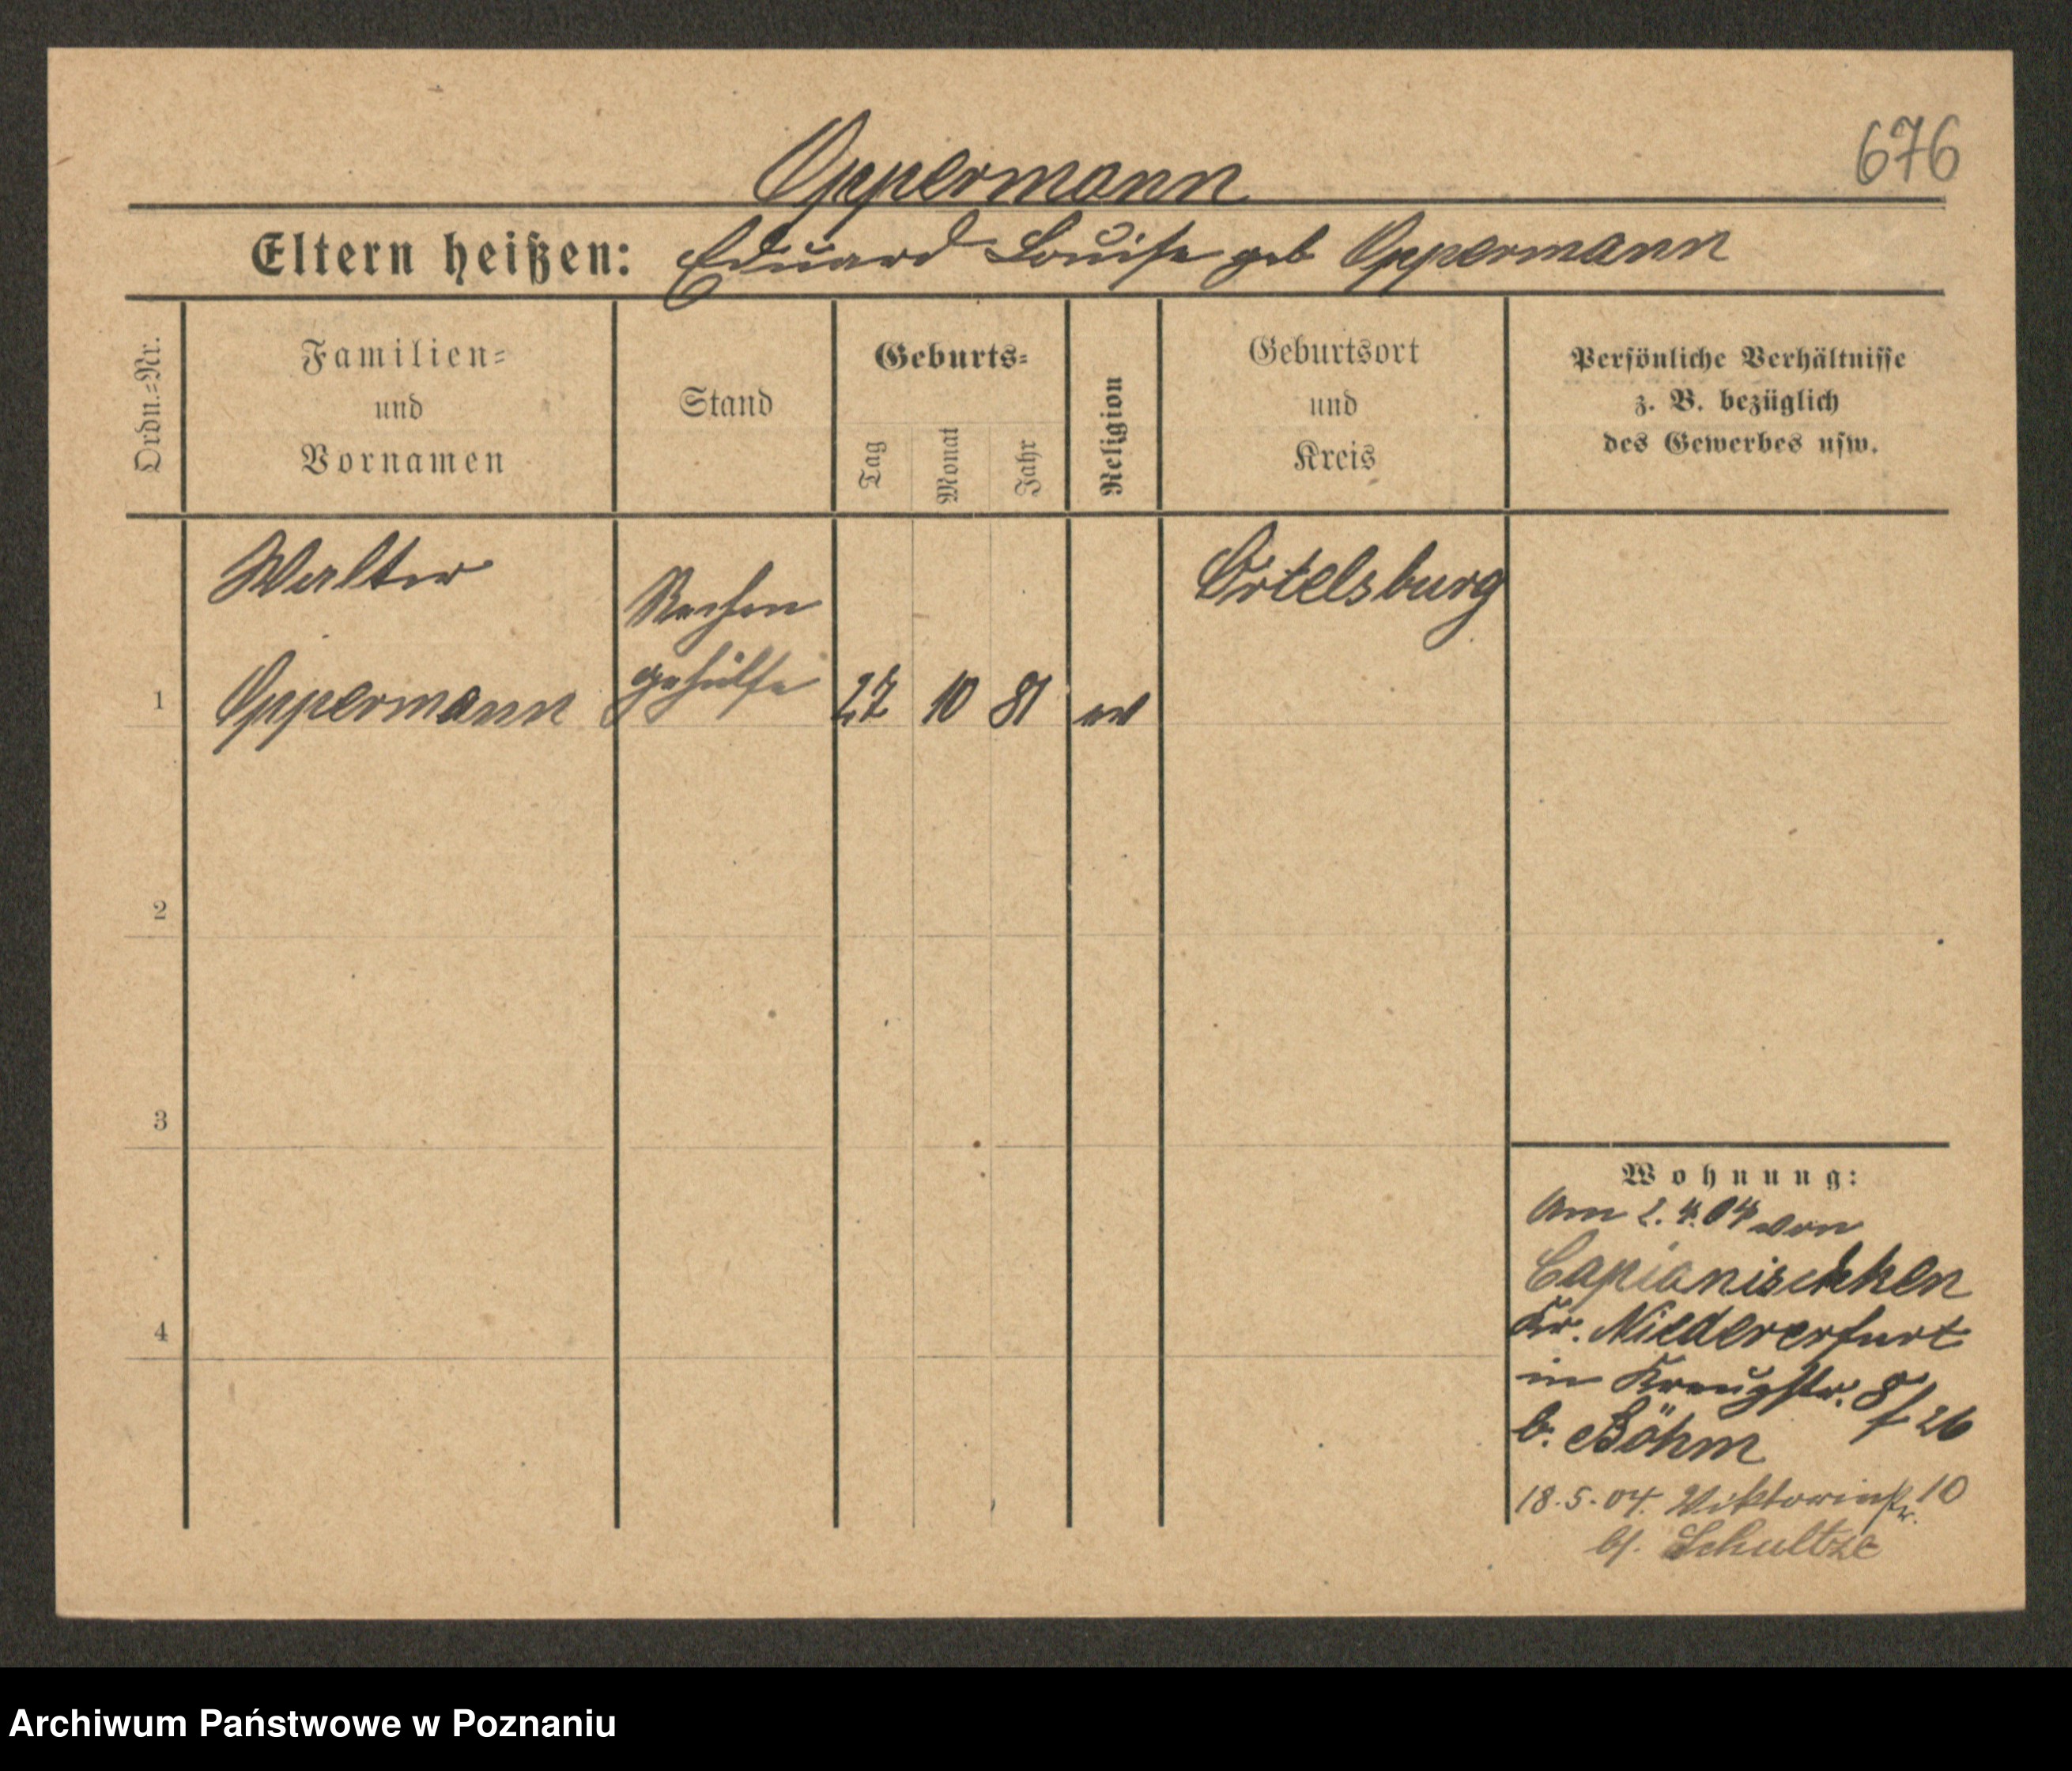 676
Oppermann
Eltern heißen: Eduard Louise geb Oppermann
Ordn.=Nr.
Familien=
und
Vornamen
Stand
Geburts=
Tag
Monat
Jahr
Religion
Geburtsort
und
Kreis
Persönliche Verhältnisse
z. B. bezüglich
des Gewerbes usw.
Walter
Oppermann
gehülfe
1
27 10 81 ev
Ortelsburg
2
3
4
Wohnung:
Am 2.4.04 von
Capianischken
Kr. Niedererfurt
in Kreuzstr. 8 f 26
b. Böhm
18.5.04. Viktoriastr. 10
bf. Schultze
Archiwum Państwowe w Poznaniu